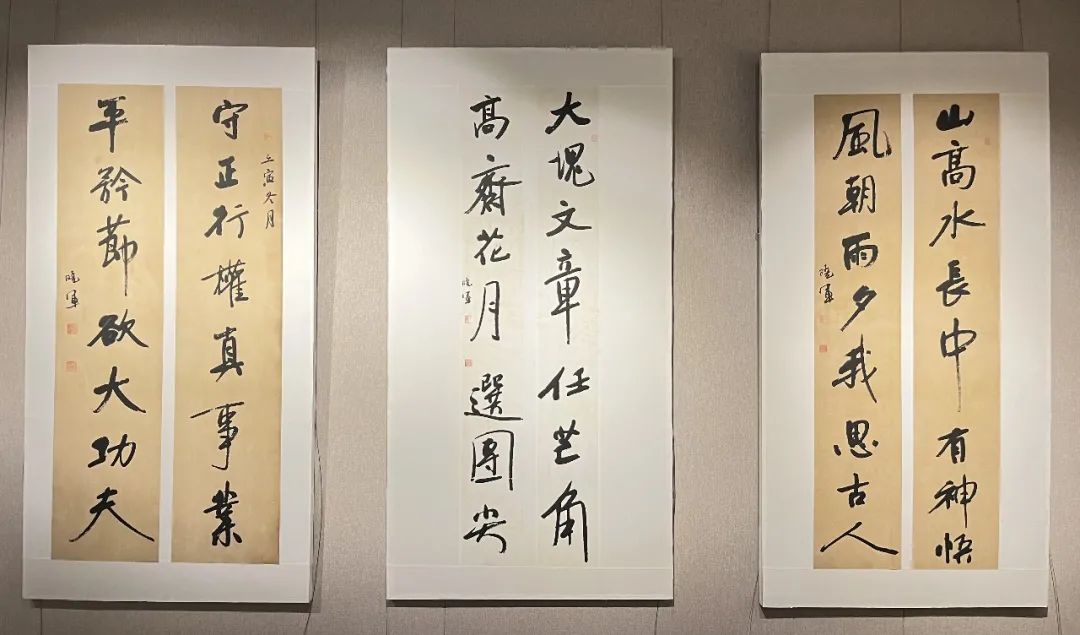 山高水長中有神悟
風朝雨夕我思古人
曉軍
大塊文章任芒角
高齋花月選團尖
曉軍
壬寅冬月
守正行權真事業
平矜節欲大功夫
曉軍